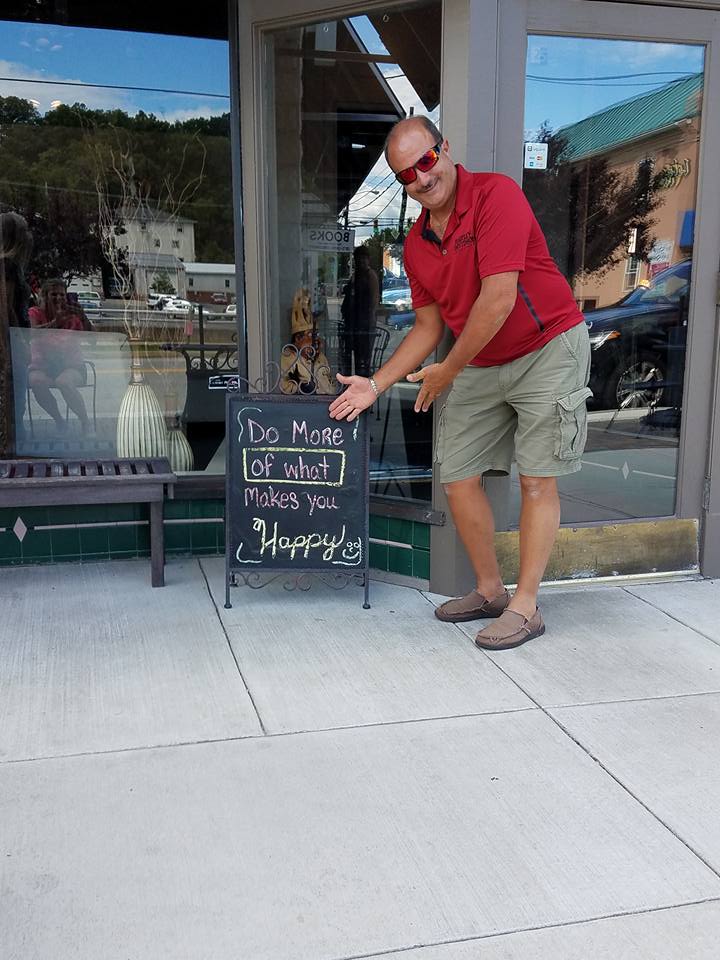 BOOKS
Do More
of what
makes you
Happy